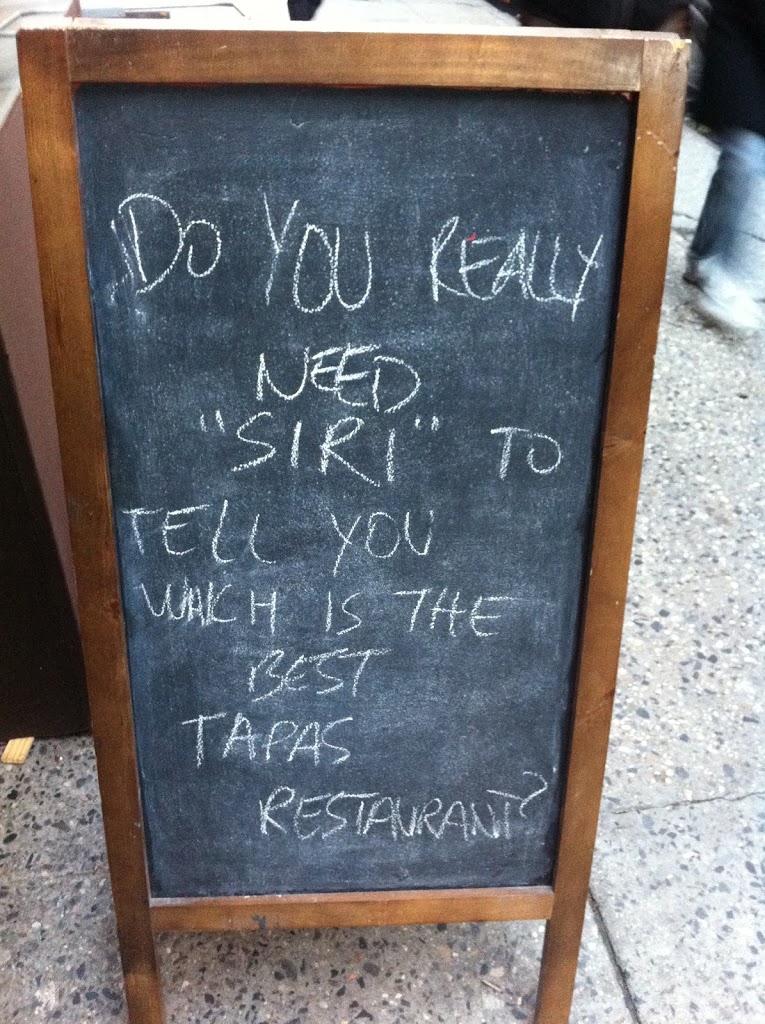 DO YOU REALLY
NEED
"SIRI" TO
TELL YOU
WHICH IS THE
BEST
TAPAS
RESTAURANT?